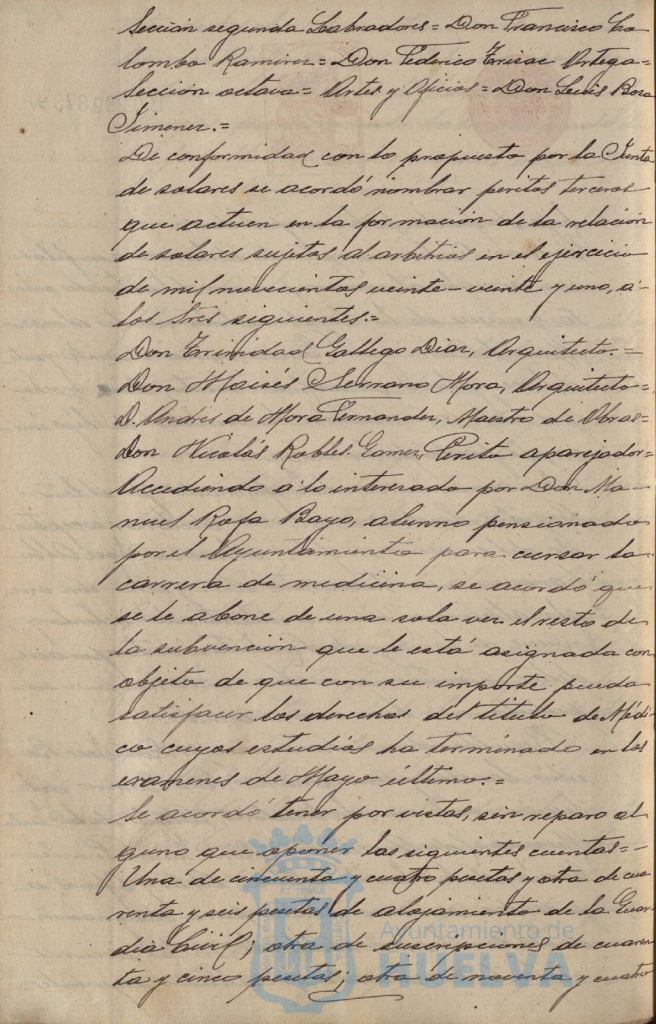 Sección segunda Labradores = Don Francisco Co
lombo Ramirez = Don Federico Ortega =
Sección octava = Artes y Oficios = Don Luis Bora
Jimenez. =
De conformidad con lo propuesto por la Junta
de solares se acordó nombrar peritos terceros
que actuen en la formación de la relación
de solares sujetos al arbitrio en el ejercicio
de mil novecientos veinte-veinte y uno, á
los tres siguientes. =
Don Trinidad Gallego Diaz, Arquitecto. =
Don Moisés Serrano Mora, Arquitecto =
D. Andres de Mora Fernandez, Maestro de Obras =
Don Nicolás Robles Gomez, Perito aparejador =
Accediendo á lo interesado por Don Ma-
nuel Rofa Bayo, alumno pensionado
por el Ayuntamiento para cursar la
carrera de medicina, se acordó que
se le abone de una sola vez el resto de
la subvención que le está asignada con
objeto de que con su importe pueda
satisfacer los derechos del título de Médi
co cuyos estudios ha terminado en los
exámenes de Mayo último. =
Se acordó tener por vistas, sin reparo al
guno que oponer las siguientes cuentas =
Una de cincuenta y cuatro pesetas y otra de cua
renta y seis pesetas de alojamiento de la Guar
dia Civil; otra de suscripciones de cuaren
ta y cinco pesetas; otra de noventa y cuatro
Ayuntamiento de
HUELVA